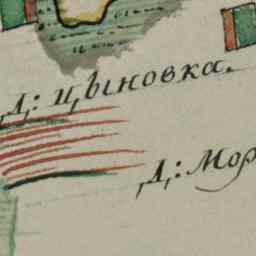 Д: цыновка.
Д: Мор